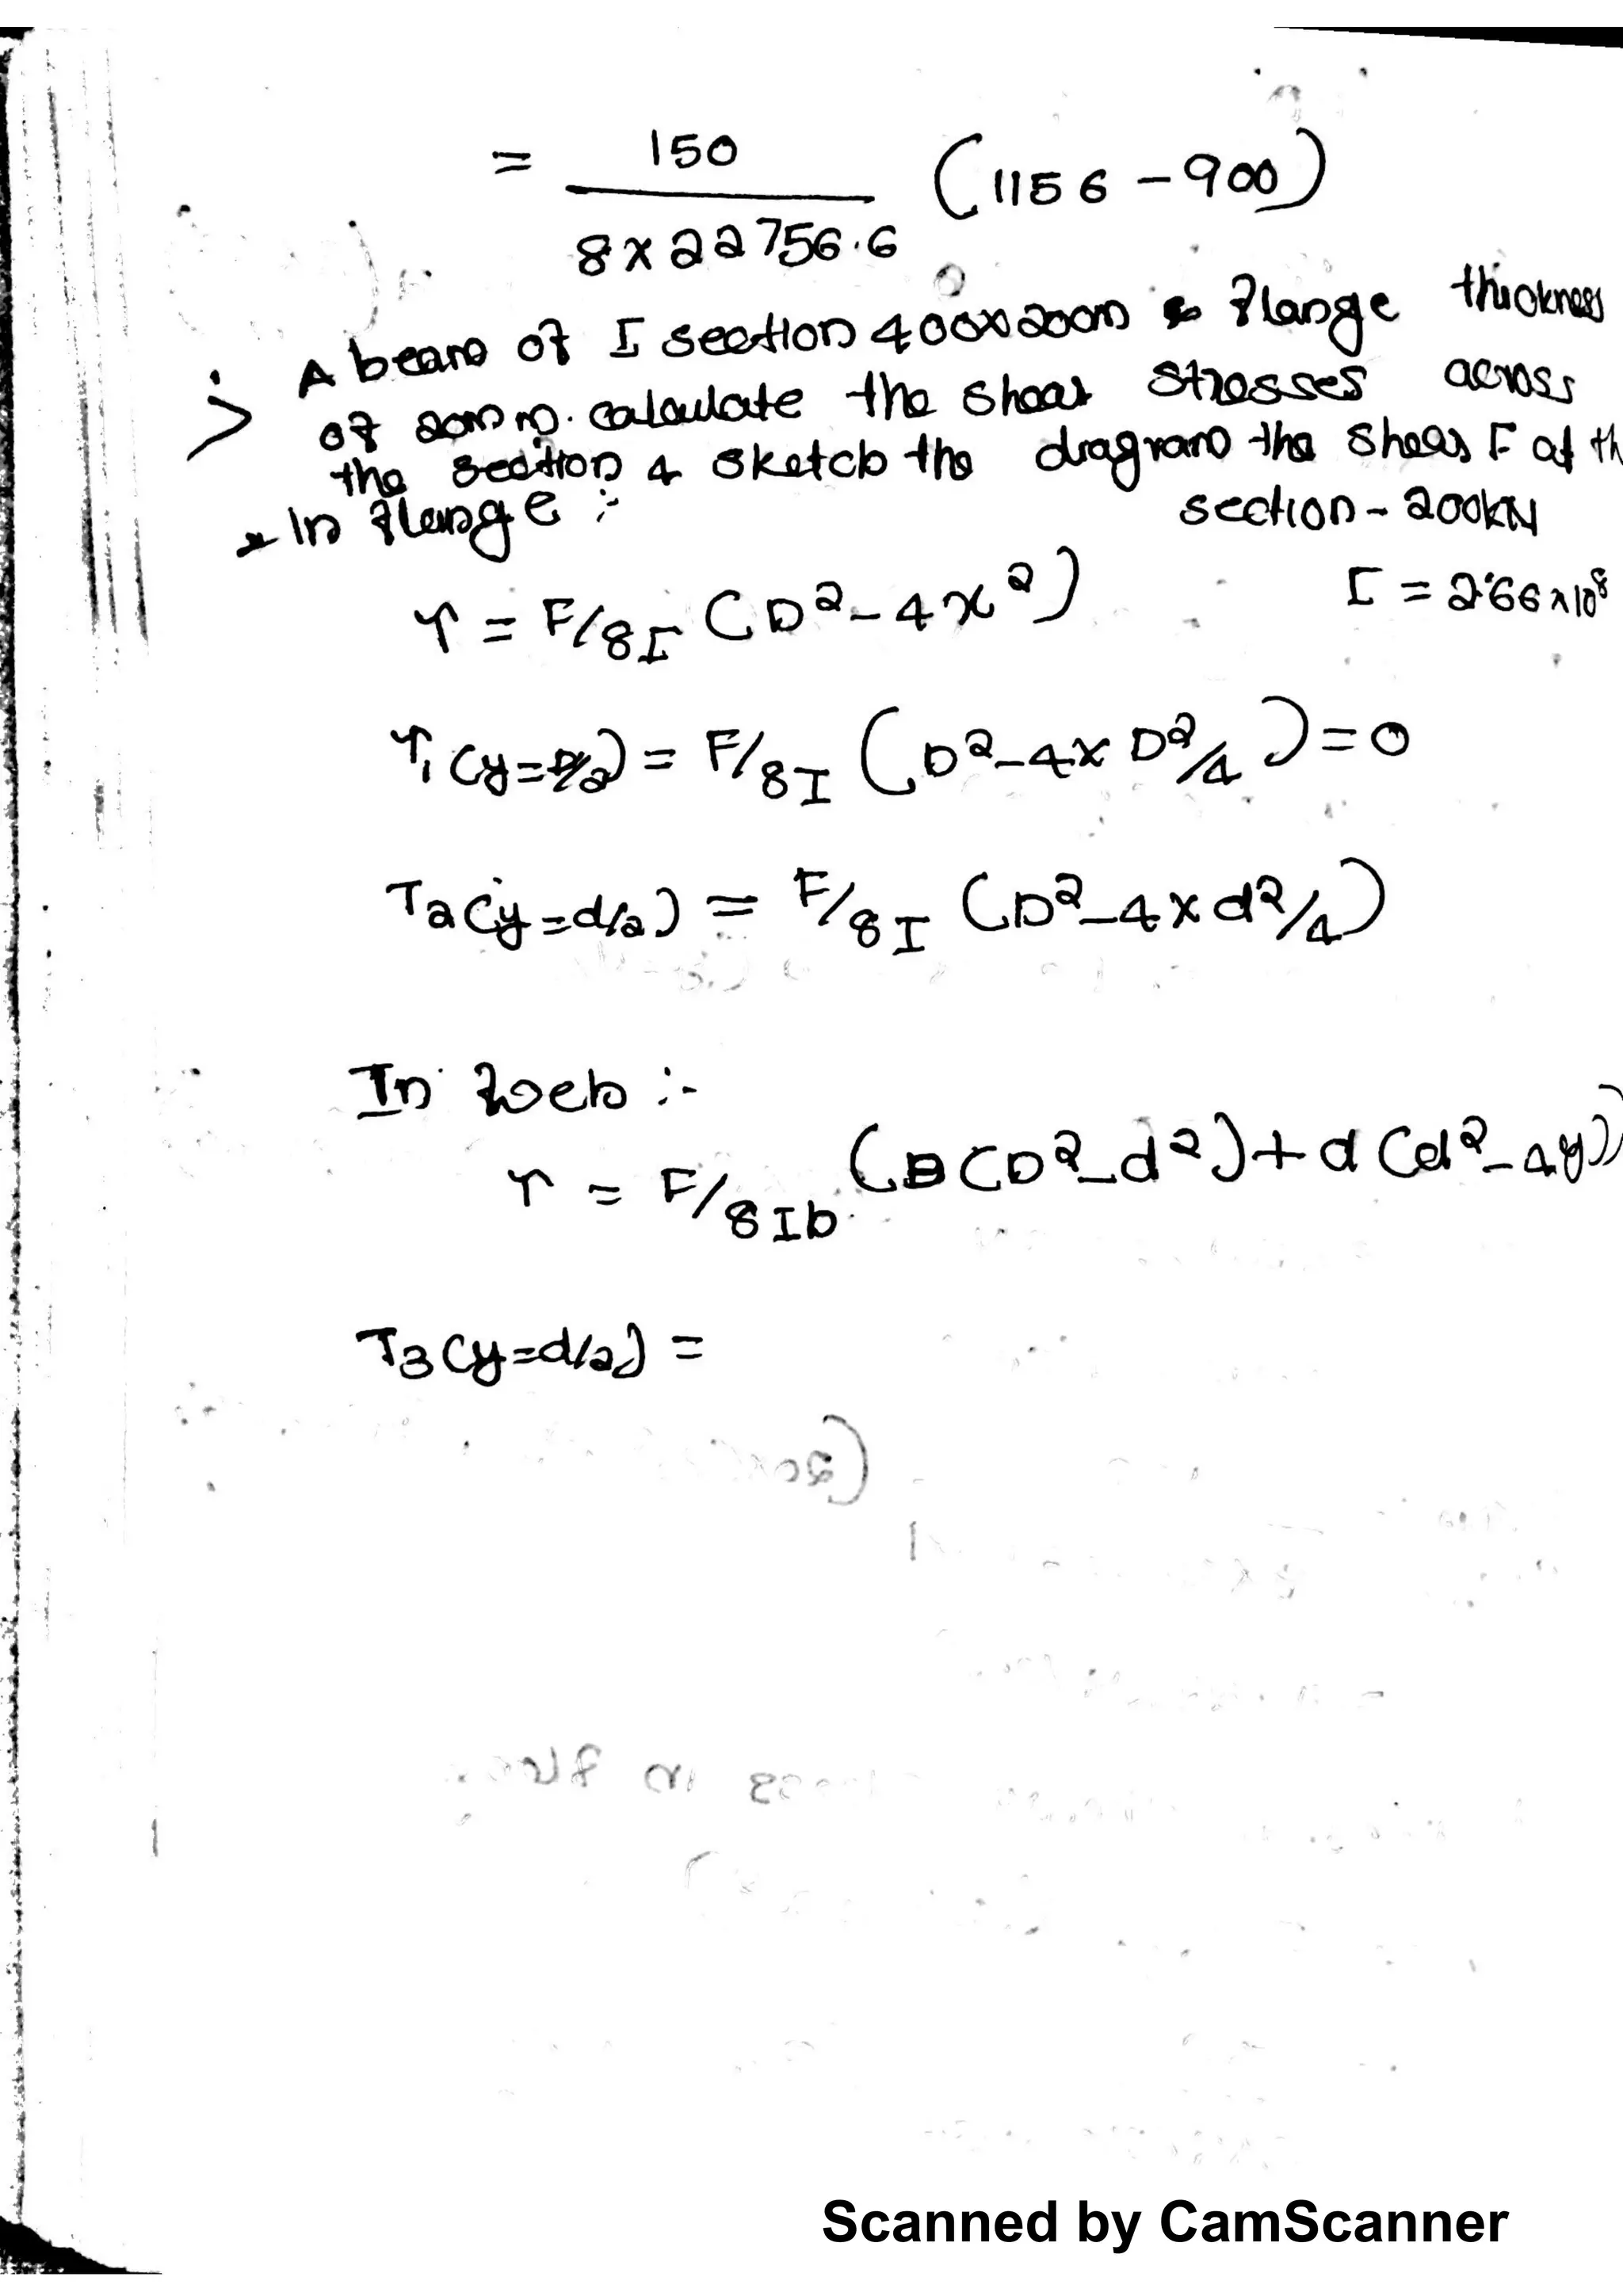 = 150 / 8 x 22756.6 (1156 - 900)
> A beam of I section 400x200m & flange thickness
of 20mm. calculate the shear stresses across
the section & sketch the diagram the shear F at th
section - 200kN
* In flange :-
I = 2.66 x 10⁸
τ = F/8I (D² - 4x²)
τ₁ (y = D/2) = F/8I (D² - 4 x D²/4) = 0
τ₂ (y = d/2) = F/8I (D² - 4 x d²/4)
In web :-
τ = F/8Ib (B (D² - d²) + d (d² - 4y))
τ₃ (y = d/2) =
Scanned by CamScanner